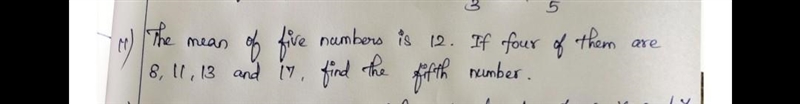 3 5
11) The mean of five numbers is 12. If four of them are
8, 11, 13 and 17, find the fifth number.